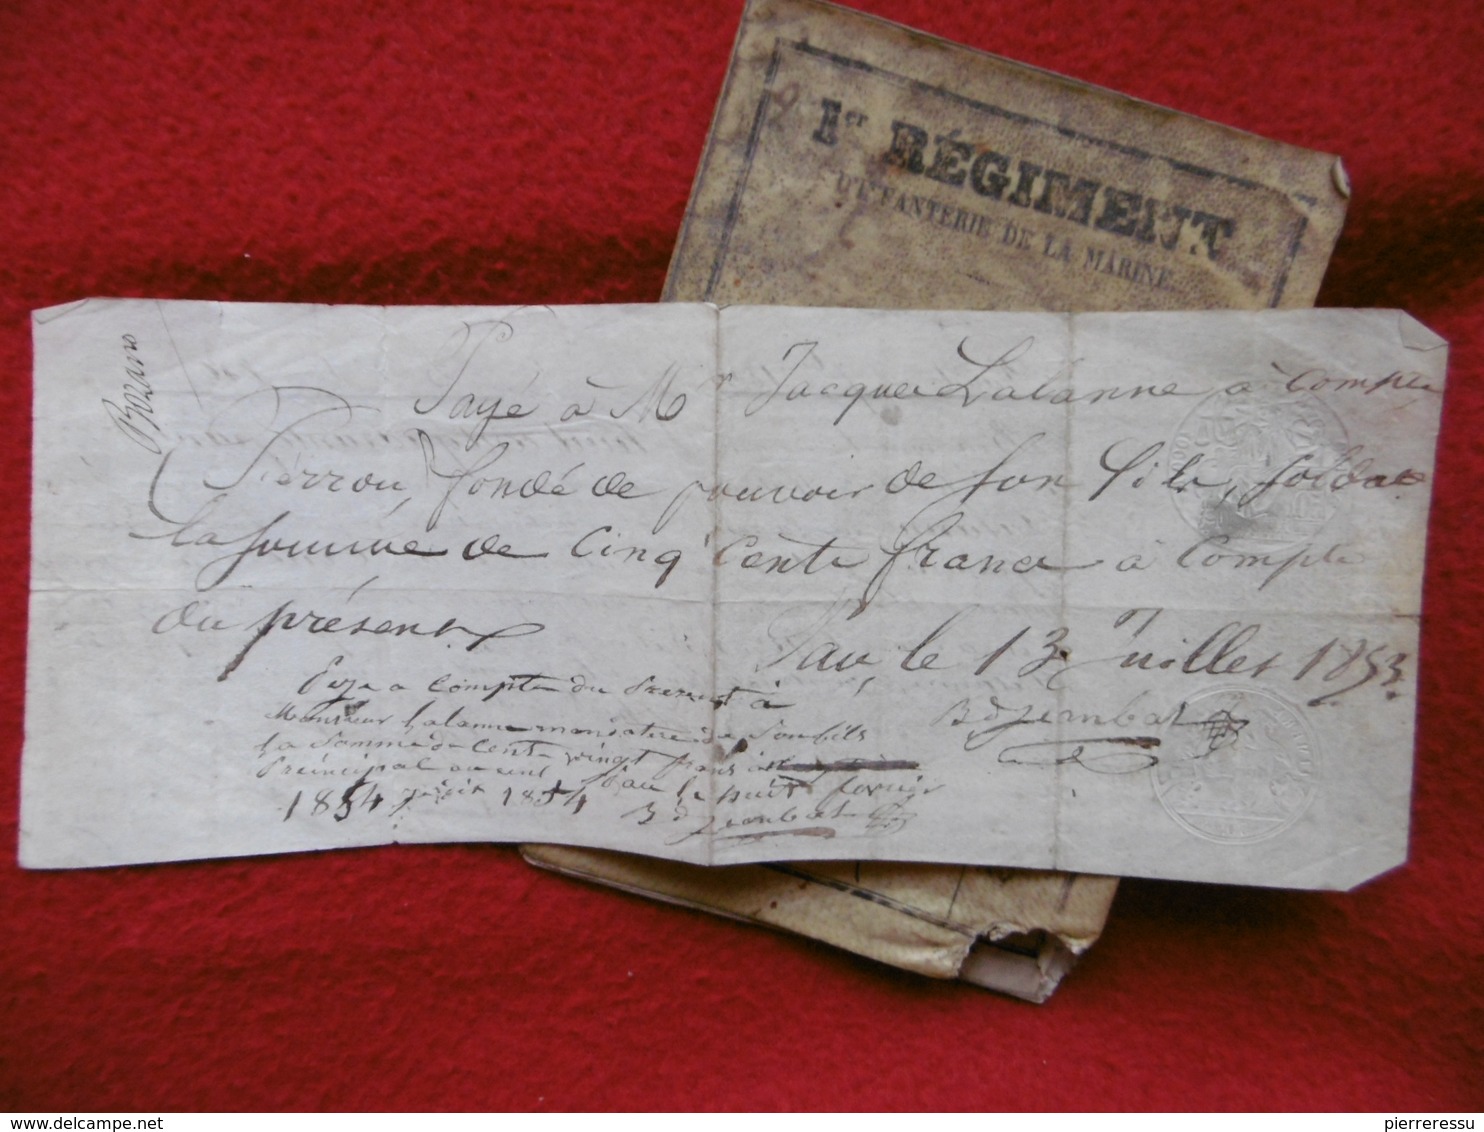 1er RÉGIMENT
D'INFANTERIE DE LA MARINE
Bozano
Payé à Mr Jacques Lalanne à Compte
Pierrou, fondé de pouvoir de son fils, soldat
la somme de Cinq Cents francs à Compte
du présent
Pau, le 13 Juillet 1853.
Paye a Compte du Present à
Monsieur Lalanne mandataire de Son fils
la Somme de Cent vingt frans
Preincipal Pau le huit fevrier
1854 1854
delcampe.net
pierreressu